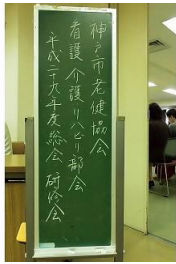 神戸市老健協会
看護 介護 リハビリ部会
平成二十九年度総会 研修会